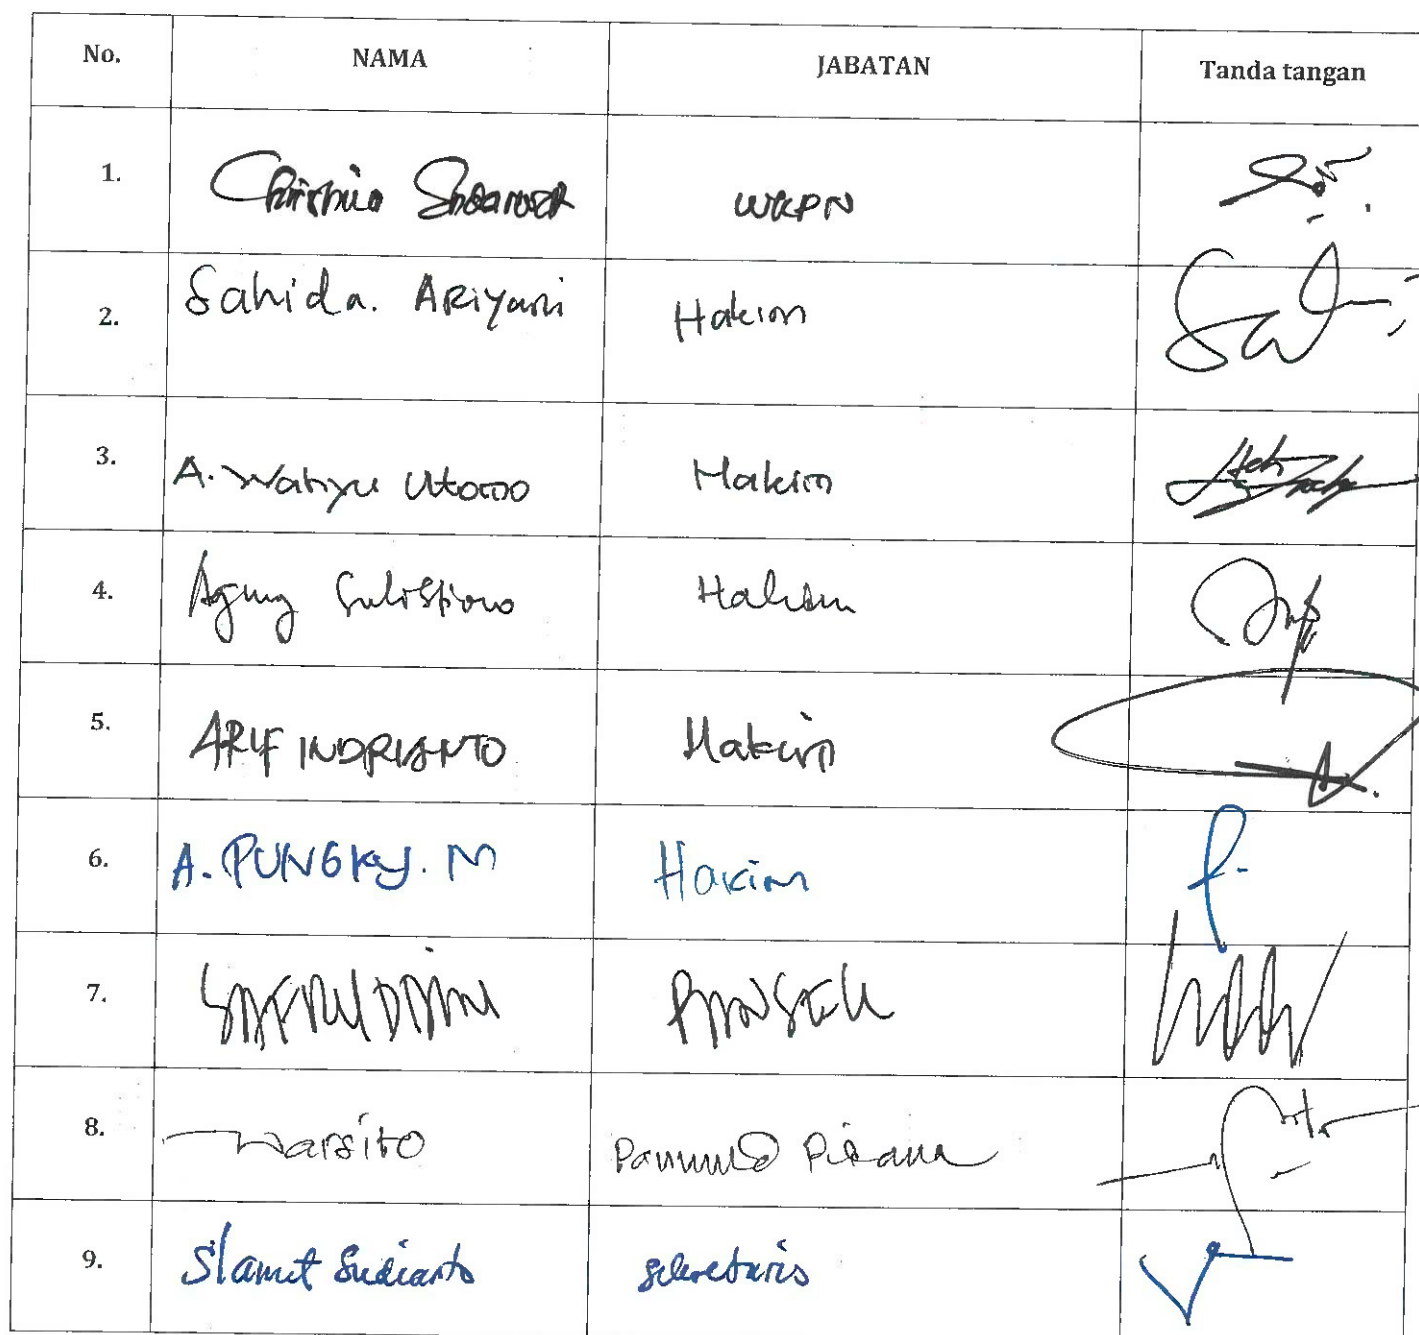 No. NAMA JABATAN Tanda tangan
1. WKPN
2. Sahida. ARiyani Hakim
3. A. Wahyu Utomo Hakim
4. Agung Sulistiono Hakim
5. ARIF INDRIANTO Hakim
6. A. PUNGKy. M Hakim
7. SAFRUDDIN PANSEK
8. Warsito Panmud Pidana
9. Slamet Sudianto sekretaris